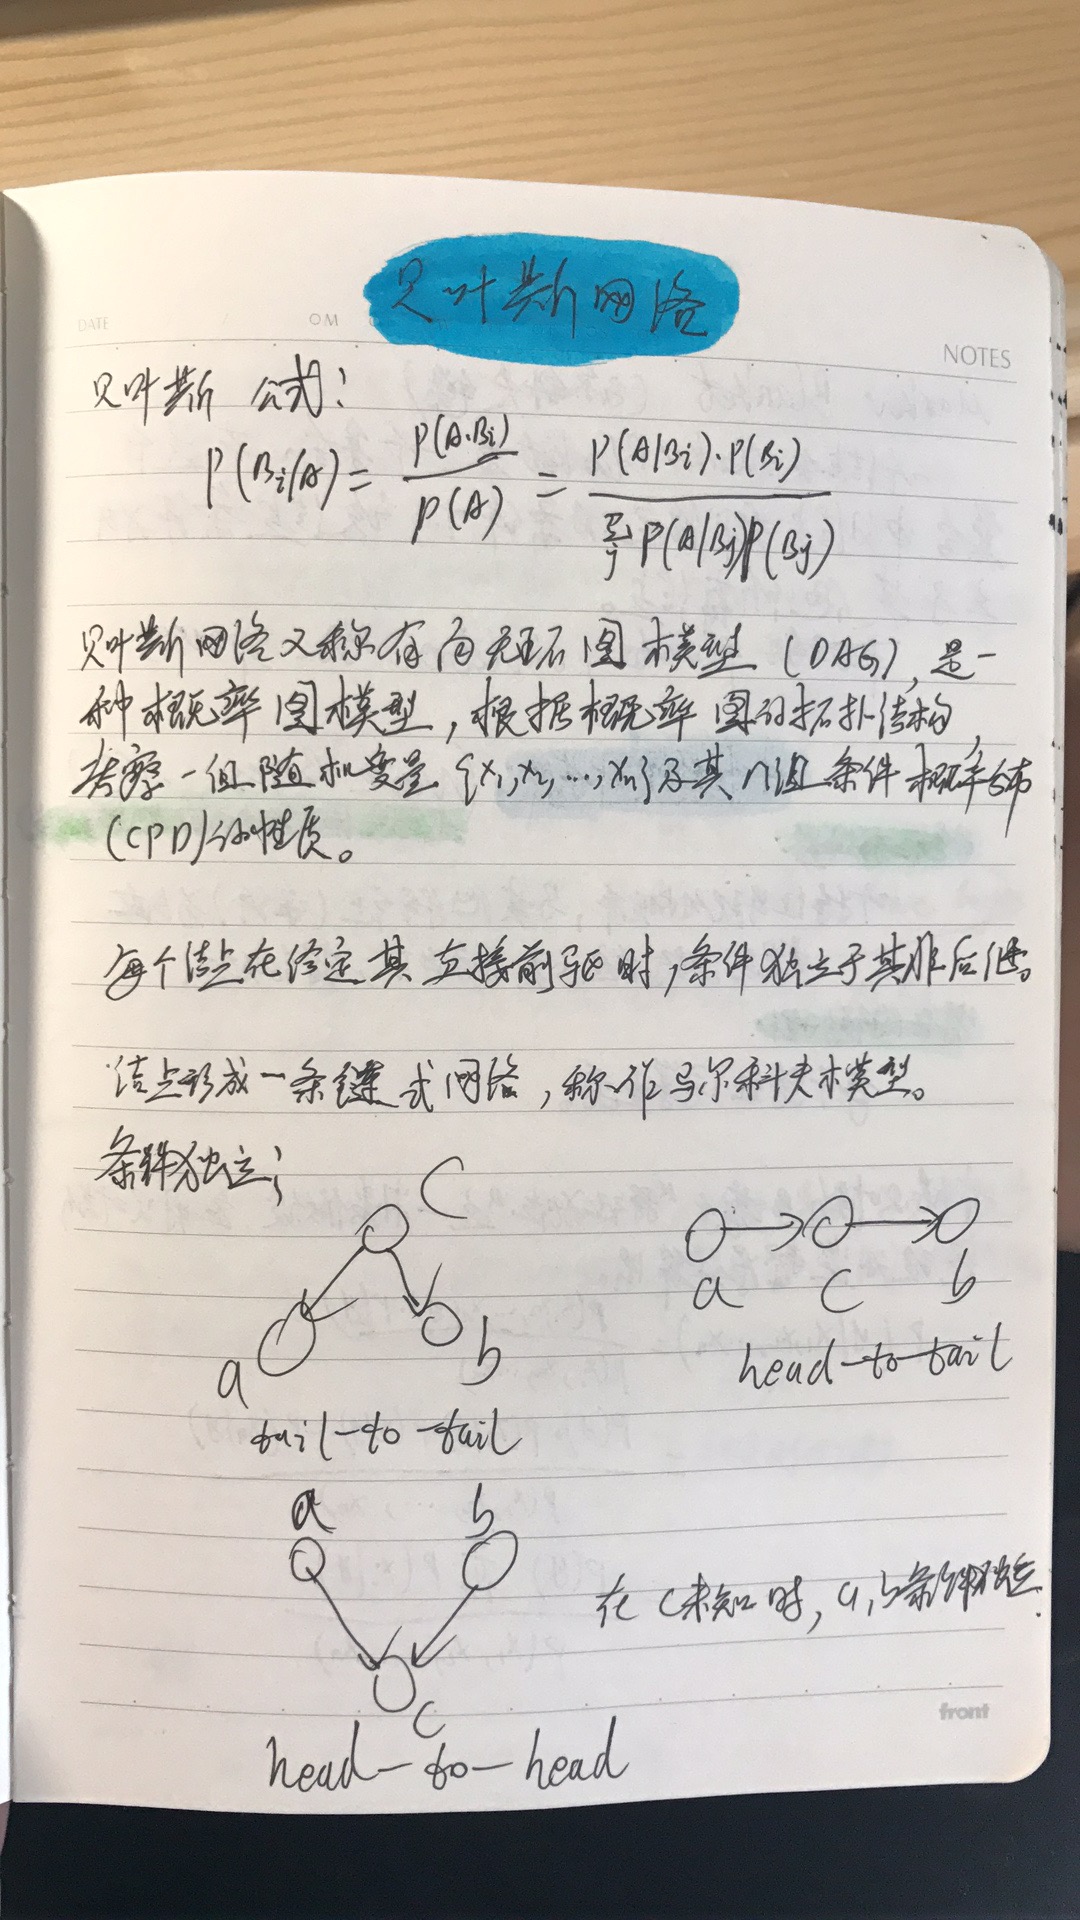 贝叶斯网络
DATE
OM
NOTES
贝叶斯 公式:
P(Bi|A) = P(A·Bi) / P(A) = P(A|Bi)·P(Bi) / Σj P(A|Bj)P(Bj)
贝叶斯网络又称有向无环图模型 (DAG), 是一
种概率图模型, 根据概率图的拓扑结构,
考察一组随机变量{x1,x2,...,xn}及其n组条件概率分布
(CPD)的性质。
每个结点在给定其直接前驱时,条件独立于其非后继。
结点形成一条链式网络,称作马尔科夫模型。
条件独立:
C
a c b
a b
head-to-tail
tail-to-tail
a b
在c未知时,a,b条件独立.
c
front
head-to-head